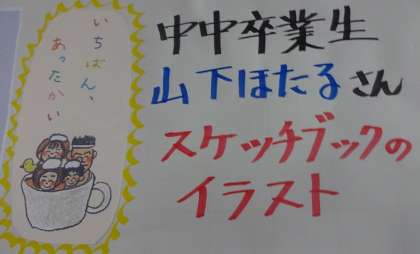 いちばん、
あったかい
中中卒業生
山下ほたるさん
スケッチブックの
イラスト